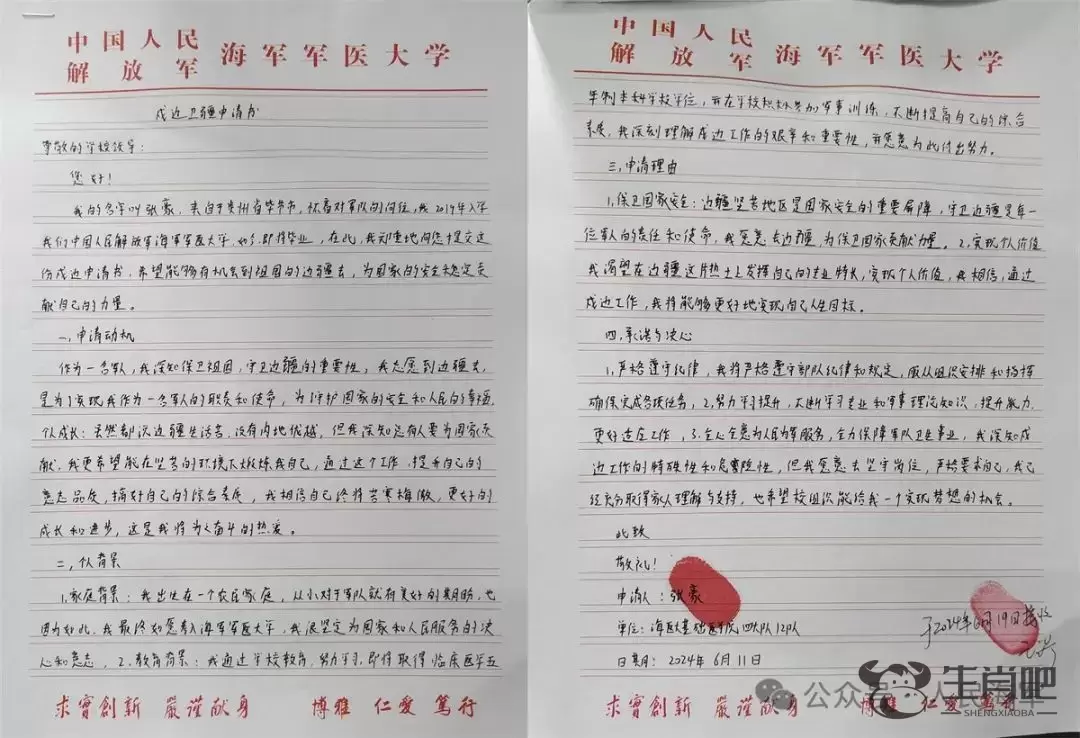 中国人民
解放军
海军军医大学
戍边卫疆申请书
尊敬的学校领导：
您好！
我的名字叫张豪，来自于贵州省毕节市，怀着对军队的向往，我2019年入学
我们中国人民解放军海军军医大学，如今即将毕业，在此，我郑重地向您提交这
份戍边申请书，希望能够有机会到祖国的边疆去，为国家的安全稳定贡
献自己的力量。
一、申请动机
作为一名军人，我深知保卫祖国，守卫边疆的重要性，我志愿到边疆去，
是为了实现我作为一名军人的职责和使命，为守护国家的安全和人民的幸福，
个人成长：虽然都说边疆生活苦，没有内地优越，但我深知总有人要为国家贡
献，我更希望能在艰苦的环境下锻炼我自己，通过这个工作，提升自己的
意志品质，搞好自己的综合素质，我相信自己终将苦寒梅傲，更好的
成长和进步，这是我将为之奋斗的热爱。
二、个人背景
1.家庭背景：我出生在一个农民家庭，从小对于军队就有美好的期盼，也
因为如此，我最终如愿考入海军军医大学，我很坚定为国家和人民服务的决
心和意志，2.教育背景：我通过学校教育，努力学习，即将取得临床医学五
求实创新 严谨献身 博雅 仁爱 笃行
中国人民
解放军
海军军医大学
年制本科学校学位，并在学校积极参加军事训练，不断提高自己的综合
素质，我深刻理解戍边工作的艰辛和重要性，并愿意为此付出努力。
三、申请理由
1.保卫国家安全：边疆艰苦地区是国家安全的重要屏障，守卫边疆是每一
位军人的责任和使命，我愿意去边疆，为保卫国家贡献力量。2.实现个人价值
我渴望在边疆这片热土上发挥自己的专业特长，实现个人价值，我相信，通过
戍边工作，我将能够更好地实现自己人生目标。
四、承诺与决心
1.严格遵守纪律，我将严格遵守部队纪律和规定，服从组织安排和指挥
确保完成各项任务，2.努力学习提升，不断学习专业和军事理论知识，提升能力，
更好适应工作，3.全心全意为人民为军服务，全力保障军队卫生事业，我深知戍
边工作的特殊性和危险性，但我愿意去坚守岗位，严格要求自己，我已
经充分取得家人理解与支持，也希望校组织能给我一个实现梦想的机会。
此致
敬礼！
申请人：张豪
单位：海医大基础医学院四大队12队
于2024年6月19日接收
日期：2024年6月11日
求实创新 严谨献身 博雅 仁爱 笃行
公众号
人民海军
生肖吧
SHENGXIAOBA